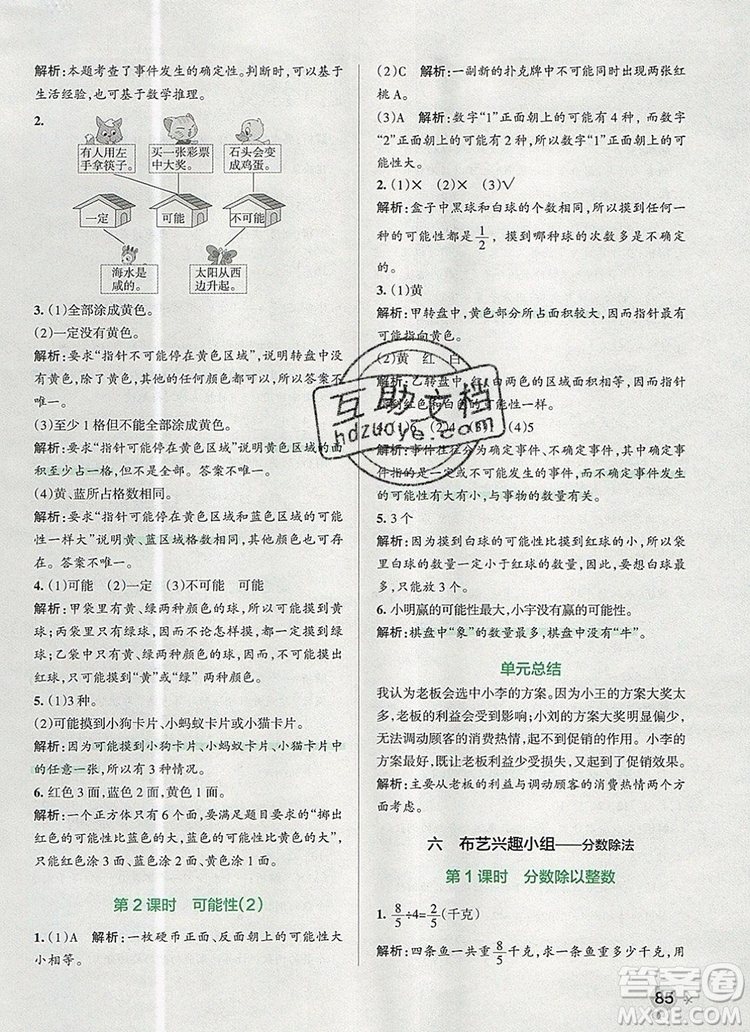 解析:本题考查了事件发生的确定性。判断时,可以基于
生活经验,也可基于数学推理。
2.
有人用左
手拿筷子。
买一张彩票
中大奖。
石头会变
成鸡蛋。
一定
可能
不可能
海水是
咸的。
太阳从西
边升起。
3. (1)全部涂成黄色。
(2)一定没有黄色。
解析:要求“指针不可能停在黄色区域”,说明转盘中
无黄色,除了黄色,其他的任何颜色都可以。答案不
唯一。
(3)至少1格但不能全部涂成黄色。
解析:要求“指针可能停在黄色区域”,说明黄色的面
积至少占一格,但不能占全部。答案不唯一。
(4)黄、蓝所占格数相同。
解析:要求“指针停在黄色区域和蓝色区域的可能
性一样大”说明黄、蓝区域格数相同,且都不能为
0。答案不唯一。
4. (1)可能 (2)一定 (3)不可能 可能
解析:甲袋里有黄、绿两种颜色的球,所以可能摸到黄
球;乙袋中只有绿色的球,不论怎样摸都是绿球;丙袋
中有白、红两种颜色的球,不可能摸到“黄”或“绿”球,
只能摸到“白”或“红”球。
5. (1)3种。
(2)可能摸到小狗卡片、小蚂蚁卡片或小猫卡片。
解析:因为可能摸到小狗卡片、小蚂蚁卡片、小猫卡片中
的任意一张,所以有3种情况。
6. 红色3面,蓝色2面,黄色1面。
解析:一个正方体有6个面,要满足题目要求的“掷出
红色的可能性最大,蓝色的可能性比红色的可能性小,
黄色的可能性最小”,只能红色涂3面、蓝色涂2面、
黄色涂1面。
第2课时 可能性(2)
1. (1)A 解析:一枚硬币正面、反面朝上的可能性大
小相等。
(2)C 解析:一副新的扑克牌中不可能同时出现两张红
桃A。
(3)A 解析:数字“1”正面朝上的可能有4种,而数字
“2”正面朝上的可能有2种,所以数字“1”正面朝上的可
能性大。
2. (1)× (2)× (3)√
解析:盒子中黑球和白球的个数相同,所以摸到任何一
种球的可能性都是1/2,摸到哪种球的次数多是不确
定的。
3. (1)黄
解析:甲转盘中,黄色部分所占面积较大,所以指针最有
可能指向黄色。
(2)黄 红 白
解析:乙转盘中,红白两色的区域面积相等,小于黄色的
面积,所以指到红色和白色的可能性相等。
4. (1)1,6 (2)4
(4)5
解析:事件性往分为确定事件、不确定事件,其中确定
事件指的是一定或不可能的事件,而不确定事件发生
的可能性有大有小,与事物的数量有关。
5. 3个
解析:因为摸到白球的可能性比摸到红球的大,所以
袋里白球的数量一定大于红球的数量。红球的数量要
少于4个,所以可能放了3个。
6. 小明赢的可能性最大,小宇没有赢的可能性。
解析:棋盘中“象”的数量最多,棋盘中没有“牛”。
单元总结
我认为老板会选中小李的方案。因为小王的方案大奖太
多,老板的利益会受到影响;小刘的方案大奖偏少,
无法调动顾客的消费热情,起不到促销的作用。小李的
方案最好,既让老板利益少受损失,又能促进顾客消费。
解析:主要从老板的利益与调动顾客的消费热情两个方
面考虑。
六 布艺兴趣小组——分数除法
第1课时 分数除以整数
1. 8/5÷4=2/5(千克)
解析:四条鱼一共重8/5千克,求一条鱼重多少千克,用
85
互助文档
hdzuoye.com
答案圈
MXQE.COM